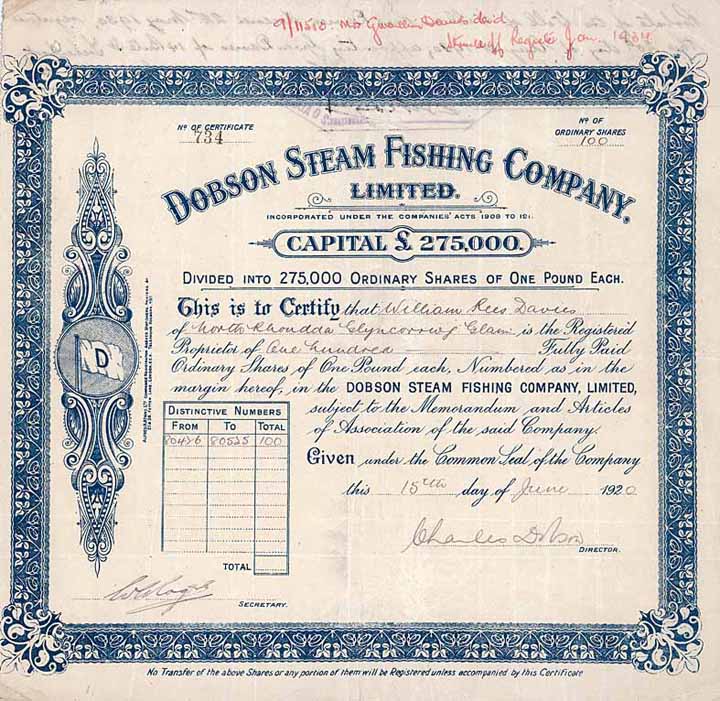 Nº OF CERTIFICATE
734
Nº OF
ORDINARY SHARES
100
DOBSON STEAM FISHING COMPANY,
LIMITED.
INCORPORATED UNDER THE COMPANIES' ACTS 1908 TO 191
CAPITAL £ 275,000.
DIVIDED INTO 275,000 ORDINARY SHARES OF ONE POUND EACH.
This is to Certify that William Rees Davies
of North Rhondda Glyncorrwg Glam is the Registered
Proprietor of One hundred Fully Paid
Ordinary Shares of One Pound each, Numbered as in the
margin hereof, in the DOBSON STEAM FISHING COMPANY, LIMITED,
subject to the Memorandum and Articles
of Association of the said Company.
Given under the Common Seal of the Company
this 15th day of June 1920
Charles Dobson
DIRECTOR.
D
DISTINCTIVE NUMBERS
FROM TO TOTAL
80426 80525 100
TOTAL
SECRETARY.
No Transfer of the above Shares or any portion of them will be Registered unless accompanied by this Certificate